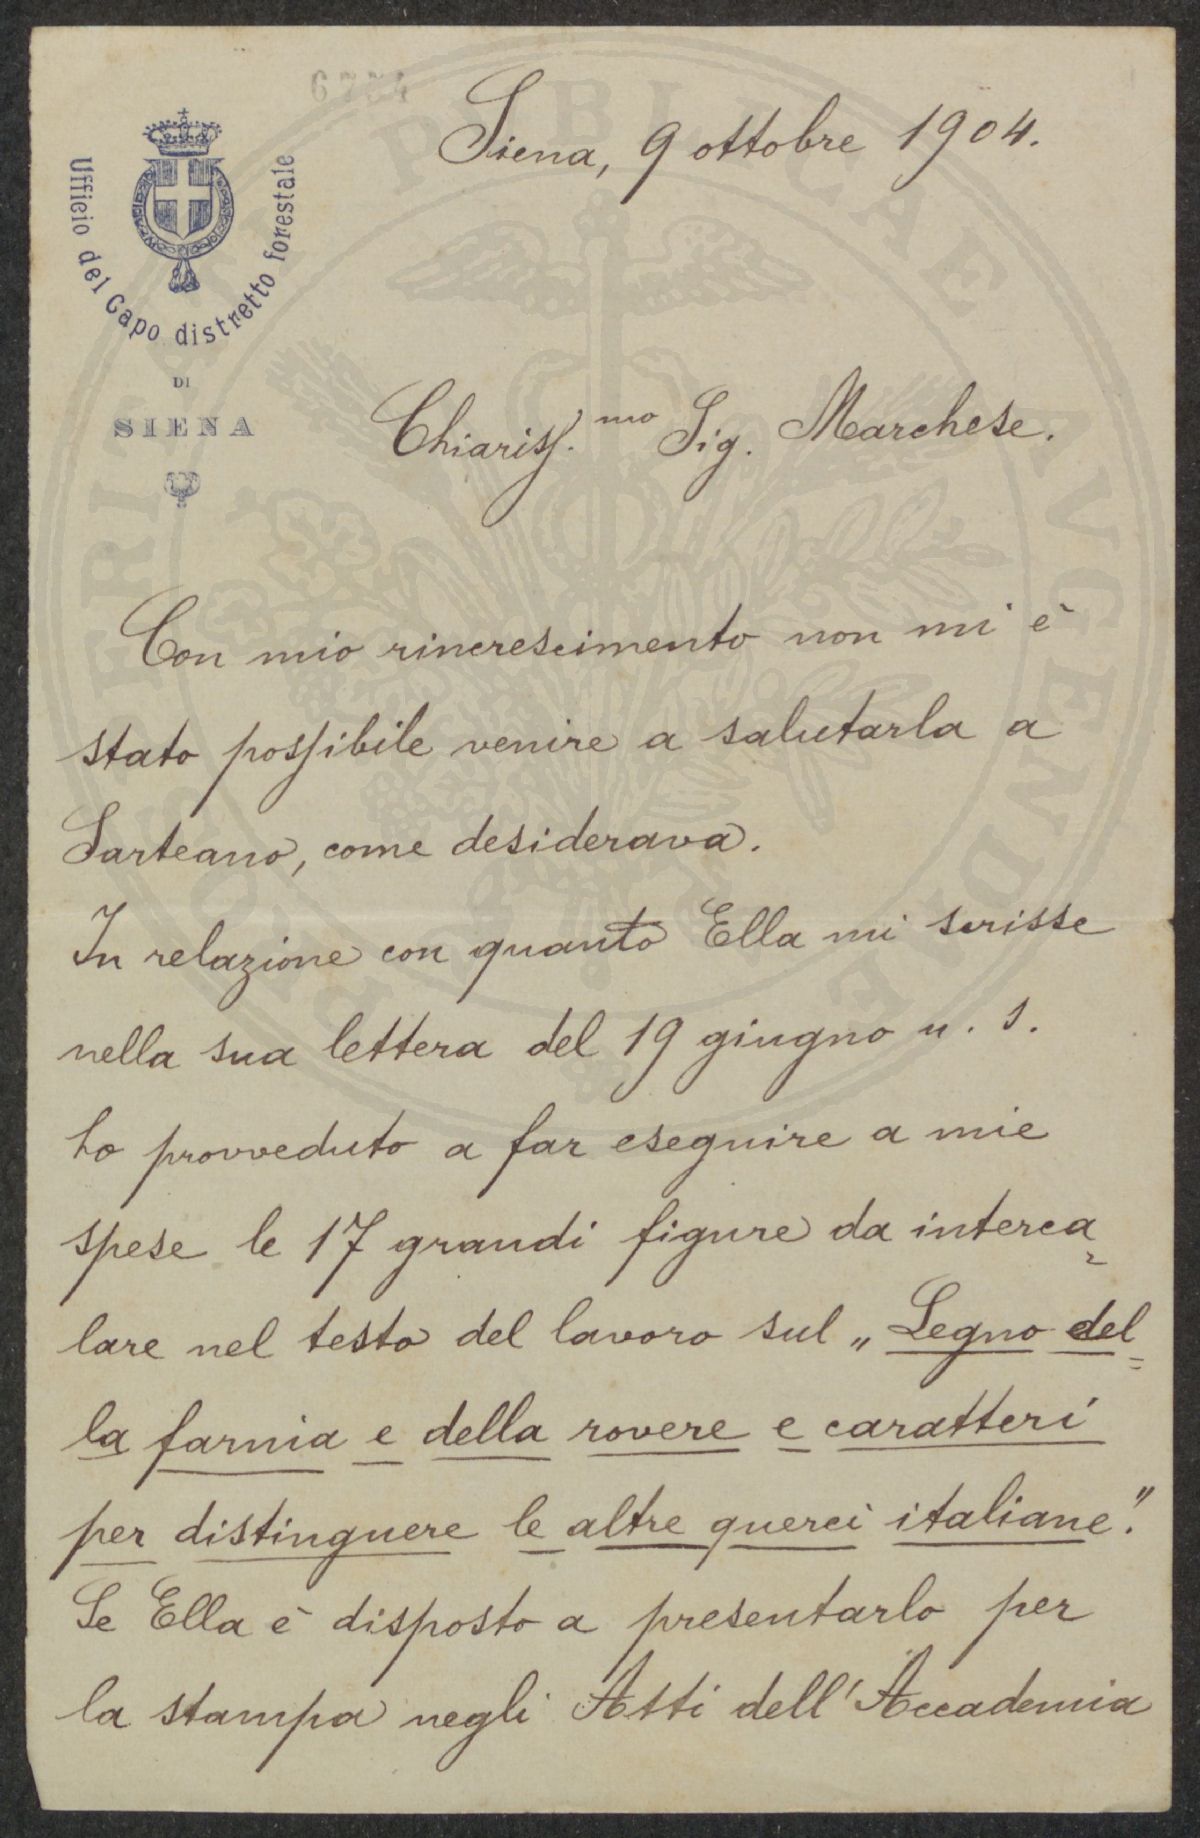 6724
Siena, 9 ottobre 1904.
Ufficio del Capo distretto forestale
DI
SIENA
Chiariss.mo Sig. Marchese.
Con mio rincrescimento non mi è
stato possibile venire a salutarla a
Sarteano, come desiderava.
In relazione con quanto Ella mi scrisse
nella sua lettera del 19 giugno u. s.
ho provveduto a far eseguire a mie
spese le 17 grandi figure da interca=
lare nel testo del lavoro sul „Legno del=
la farnia e della rovere e caratteri
per distinguere le altre querci italiane."
Se Ella è disposto a presentarlo per
la stampa negli Atti dell'Accademia
PROSPERITATI PUBLICAE AUGENDAE